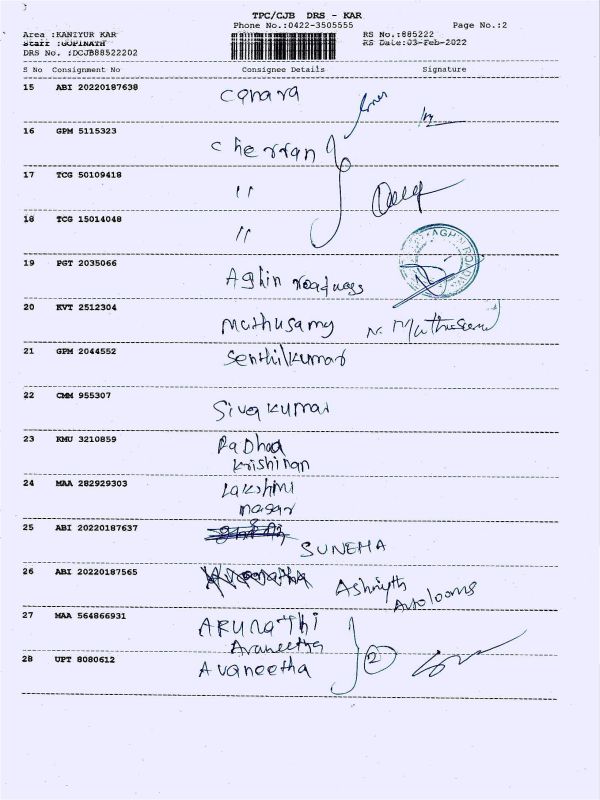 TPC/CJB DRS - KAR
Phone No.:0422-3505555 Page No.:2
Area :KANIYUR KAR RS No.:885222
Staff :GOPINATH RS Date:03-Feb-2022
DRS No. :DCJB88522202
S No Consignment No Consignee Details Signature
15 ABI 20220187638 Canara
16 GPM 5115323 Cherran
17 TCG 50109418 "
18 TCG 15014048 "
19 PGT 2035066 Aghin roadways
20 KVT 2512304 Muthusamy N. Muthusamy
21 GPM 2044552 Senthilkumar
22 CMM 955307 Sivakumar
23 KMU 3210859 Radhaa
krishinan
24 MAA 282929303 Lakshmi
nagar
25 ABI 20220187637
SUNEHA
26 ABI 20220187565 Ashriyth
Autolooms
27 MAA 564866931 ARUNATHI
Avaneetha
28 UPT 8080612 Avaneetha 2